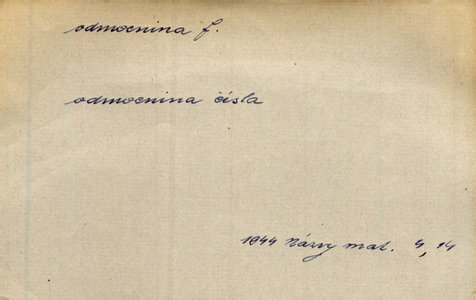 odmocnina f.
odmocnina čísla
1944 Názvy mat. 4, 14